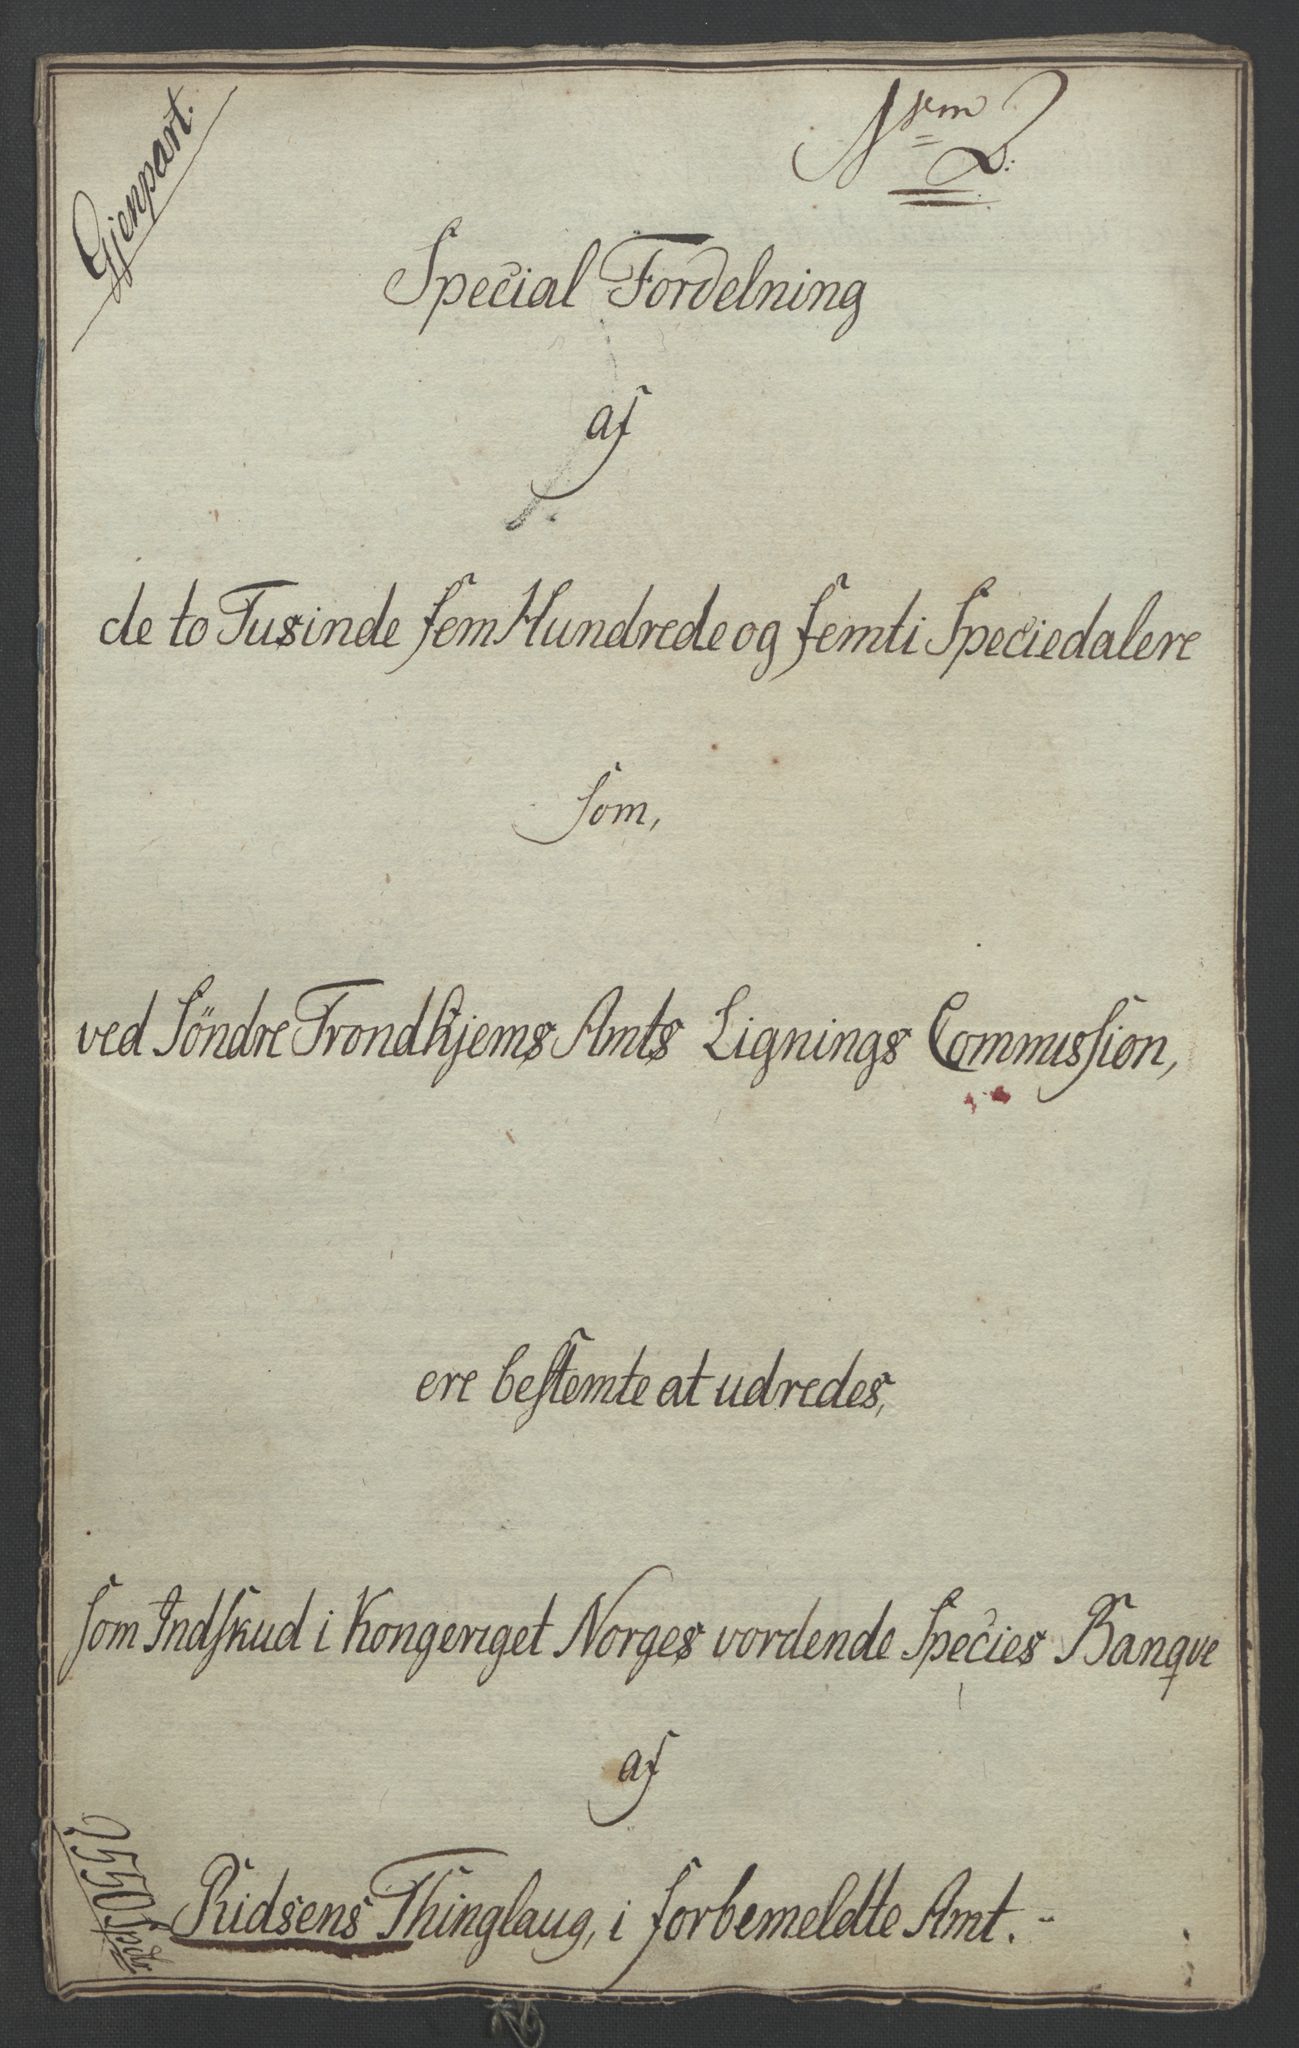 Gjenpart.
No 2.
Special Fordelning
af
de to Tusinde fem Hundrede og femti Speciedalere
som,
ved Söndre Trondhjems Amts Lignings Commission,
ere bestemte at udredes,
som Indskud i Kongeriget Norges vordende Species Banque
af
Ridsens Thinglaug, i forbemeldte Amt.
2550 Spdlr